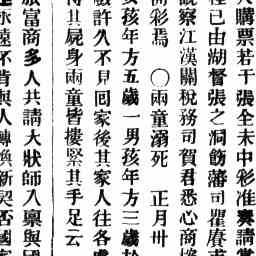 購票若干張全未中彩准囊請當
程已由湖督張之洞飭藩司瞿賡甫
觀察江漢關稅務司賀君悉心商搉
彩焉　〇兩童溺死　正月卅
女孩年方五歲一男孩年方三歲於
戲許久不見囘家後其家人往各處
得其屍身兩童皆摟緊其手足云
旅富商多人共請大狀師入稟與國
永遠不肯與人轉換新契否國家